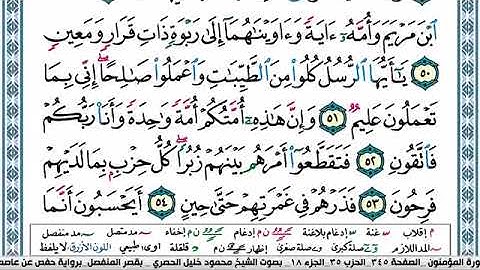 ٱبْنَ مَرْيَمَ وَأُمَّهُۥٓ ءَايَةً وَءَاوَيْنَٰهُمَآ إِلَىٰ رَبْوَةٍ ذَاتِ قَرَارٍ وَمَعِينٍ
٥٠ يَٰٓأَيُّهَا ٱلرُّسُلُ كُلُوا۟ مِنَ ٱلطَّيِّبَٰتِ وَٱعْمَلُوا۟ صَٰلِحًا ۖ إِنِّى بِمَا
تَعْمَلُونَ عَلِيمٌ ٥١ وَإِنَّ هَٰذِهِۦٓ أُمَّتُكُمْ أُمَّةً وَٰحِدَةً وَأَنَا۠ رَبُّكُمْ
فَٱتَّقُونِ ٥٢ فَتَقَطَّعُوٓا۟ أَمْرَهُم بَيْنَهُمْ زُبُرًا ۖ كُلُّ حِزْبٍۭ بِمَا لَدَيْهِمْ
فَرِحُونَ ٥٣ فَذَرْهُمْ فِى غَمْرَتِهِمْ حَتَّىٰ حِينٍ ٥٤ أَيَحْسَبُونَ أَنَّمَا
م إقلاب غنة إدغام بلاغنة م إدغام إخفاء مد متصل مد منفصل
مد اللازم صلة كبرى صلة صغرى إظهار ن م قلقلة اوى: طبيعي اللون الأزرق: لا يلفظ
ورة المؤمنون _ الصفحة ٣٤٥ _ الحزب ٣٥ _ الجزء ١٨ _ بصوت الشيخ محمود خليل الحصري _ بقصر المنفصل _ برواية حفص عن عاصم